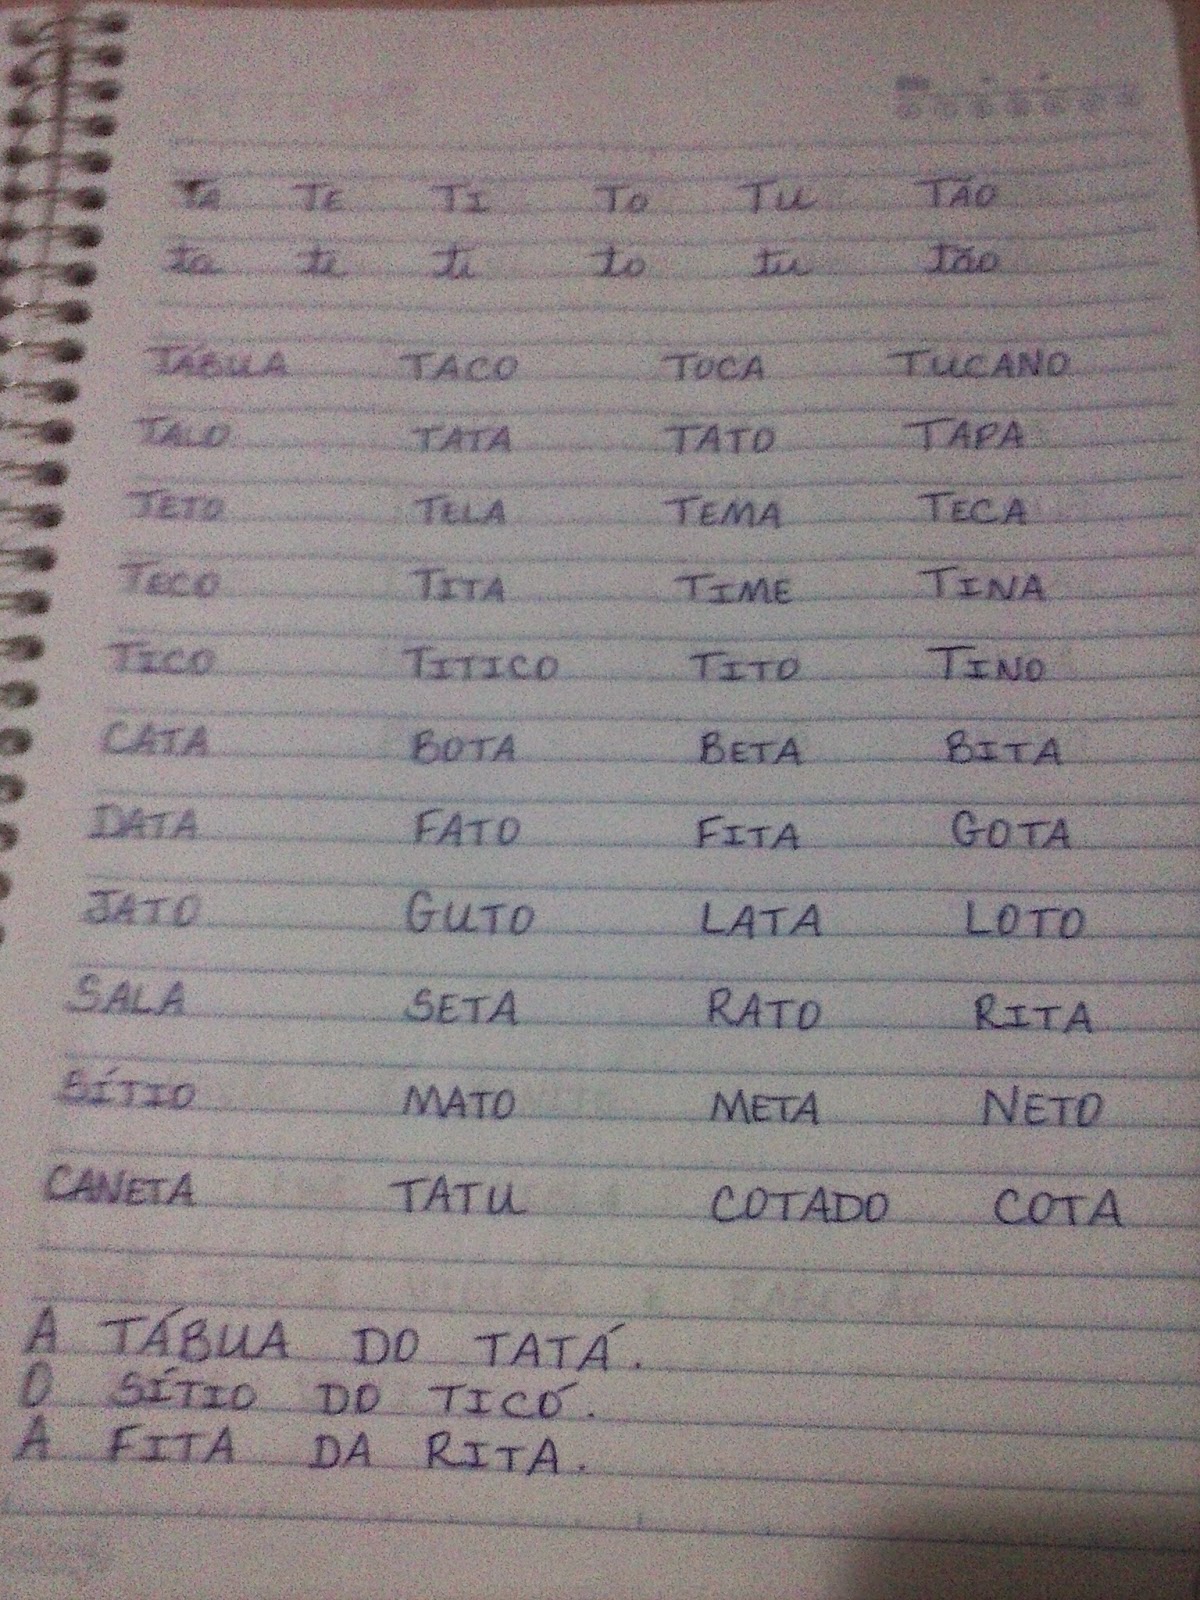 TA TE TI TO TU TÃO
ta te ti to tu tão
TÁBUA TACO TOCA TUCANO
TALO TATA TATO TAPA
TETO TELA TEMA TECA
TECO TITA TIME TINA
TICO TITICO TITO TINO
CATA BOTA BETA BITA
DATA FATO FITA GOTA
JATO GUTO LATA LOTO
SALA SETA RATO RITA
SÍTIO MATO META NETO
CANETA TATU COTADO COTA
A TÁBUA DO TATÁ.
O SÍTIO DO TICÓ.
A FITA DA RITA.